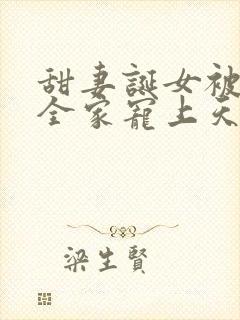 甜妻誕女被
全家寵上天
梁生賢